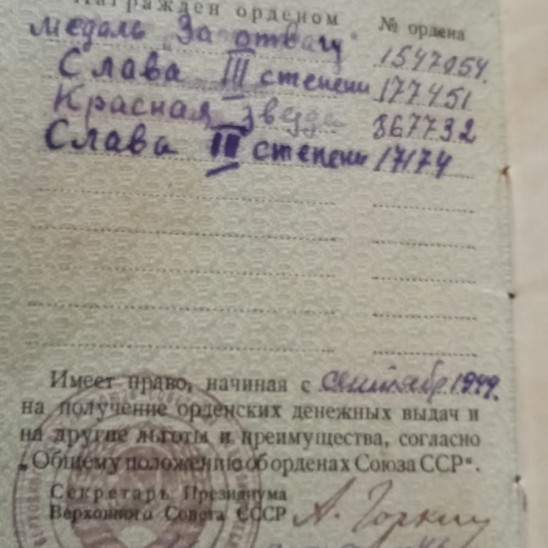 Награжден орденом № ордена
медаль "За отвагу" 1547054
Слава III степени 177451
Красная звезда 867732
Слава III степени 17174
Имеет право, начиная с сентябр. 1949.
на получение орденских денежных выдач и
на другие льготы и преимущества, согласно
„Общему положению об орденах Союза ССР“.
Секретарь Президиума
Верховного Совета СССР А. Горкин